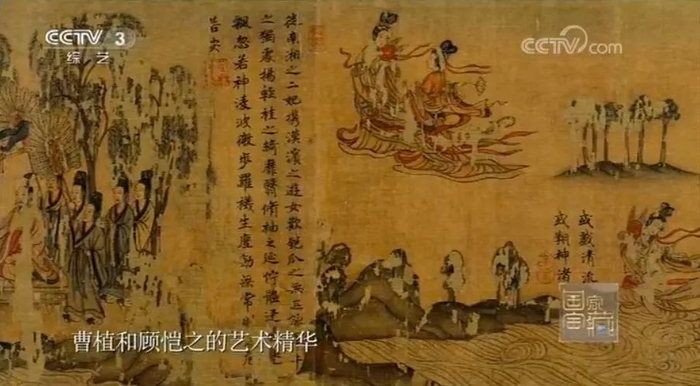 CCTV 3
综艺
CCTV.com
從南湘之二妃攜漢濱之遊女歎匏瓜之無匹
之獨處揚輕袿之綺靡翳脩袖之延佇體迅
飄忽若神凌波微步羅襪生塵動無常
若安
或戲清流
或翔神渚
国家宝藏
曹植和顾恺之的艺术精华